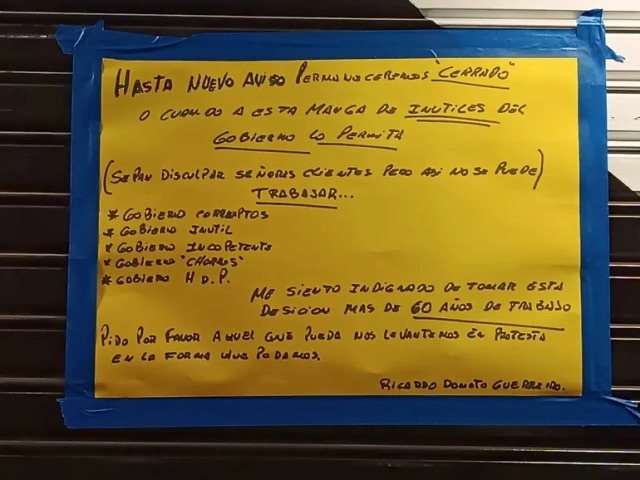 HASTA NUEVO AVISO PERMANOCEREMOS "CERRADO"
O CUANDO A ESTA MANGA DE INUTILES DEL
GOBIERNO LO PERMITA
(SEPAN DISCULPAR SEÑORES CLIENTES PERO ASI NO SE PUEDE)
TRABAJAR...
* GOBIERNO CORRUPTOS
* GOBIERNO INUTIL
* GOBIERNO INCOPETENTE
* GOBIERNO "CHORROS"
* GOBIERNO H D.P.
ME SIENTO INDIGNADO DE TOMAR ESTA
DESICION MAS DE 60 AÑOS DE TRABAJO
PIDO POR FAVOR AQUEL QUE PUEDA NOS LEVANTEMOS EN PROTESTA
EN LA FORMA QUE PODAMOS.
RICARDO DONATO GUERREIRO.